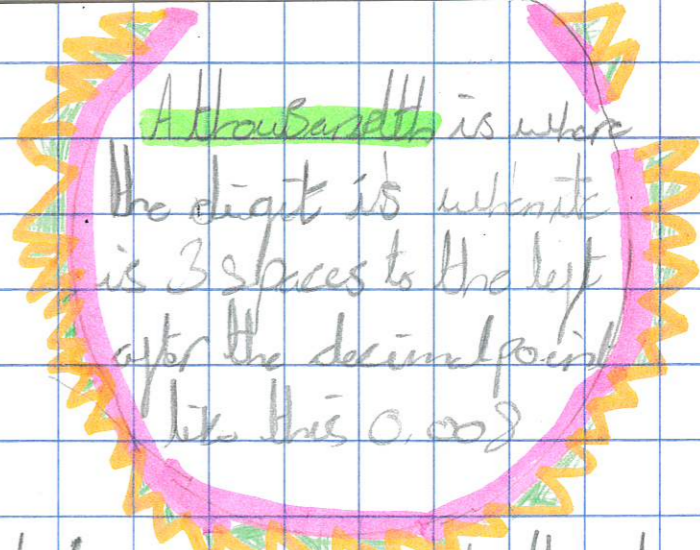 A thousandth is where
the digit is when it
is 3 spaces to the left
after the decimal point
like this 0.008